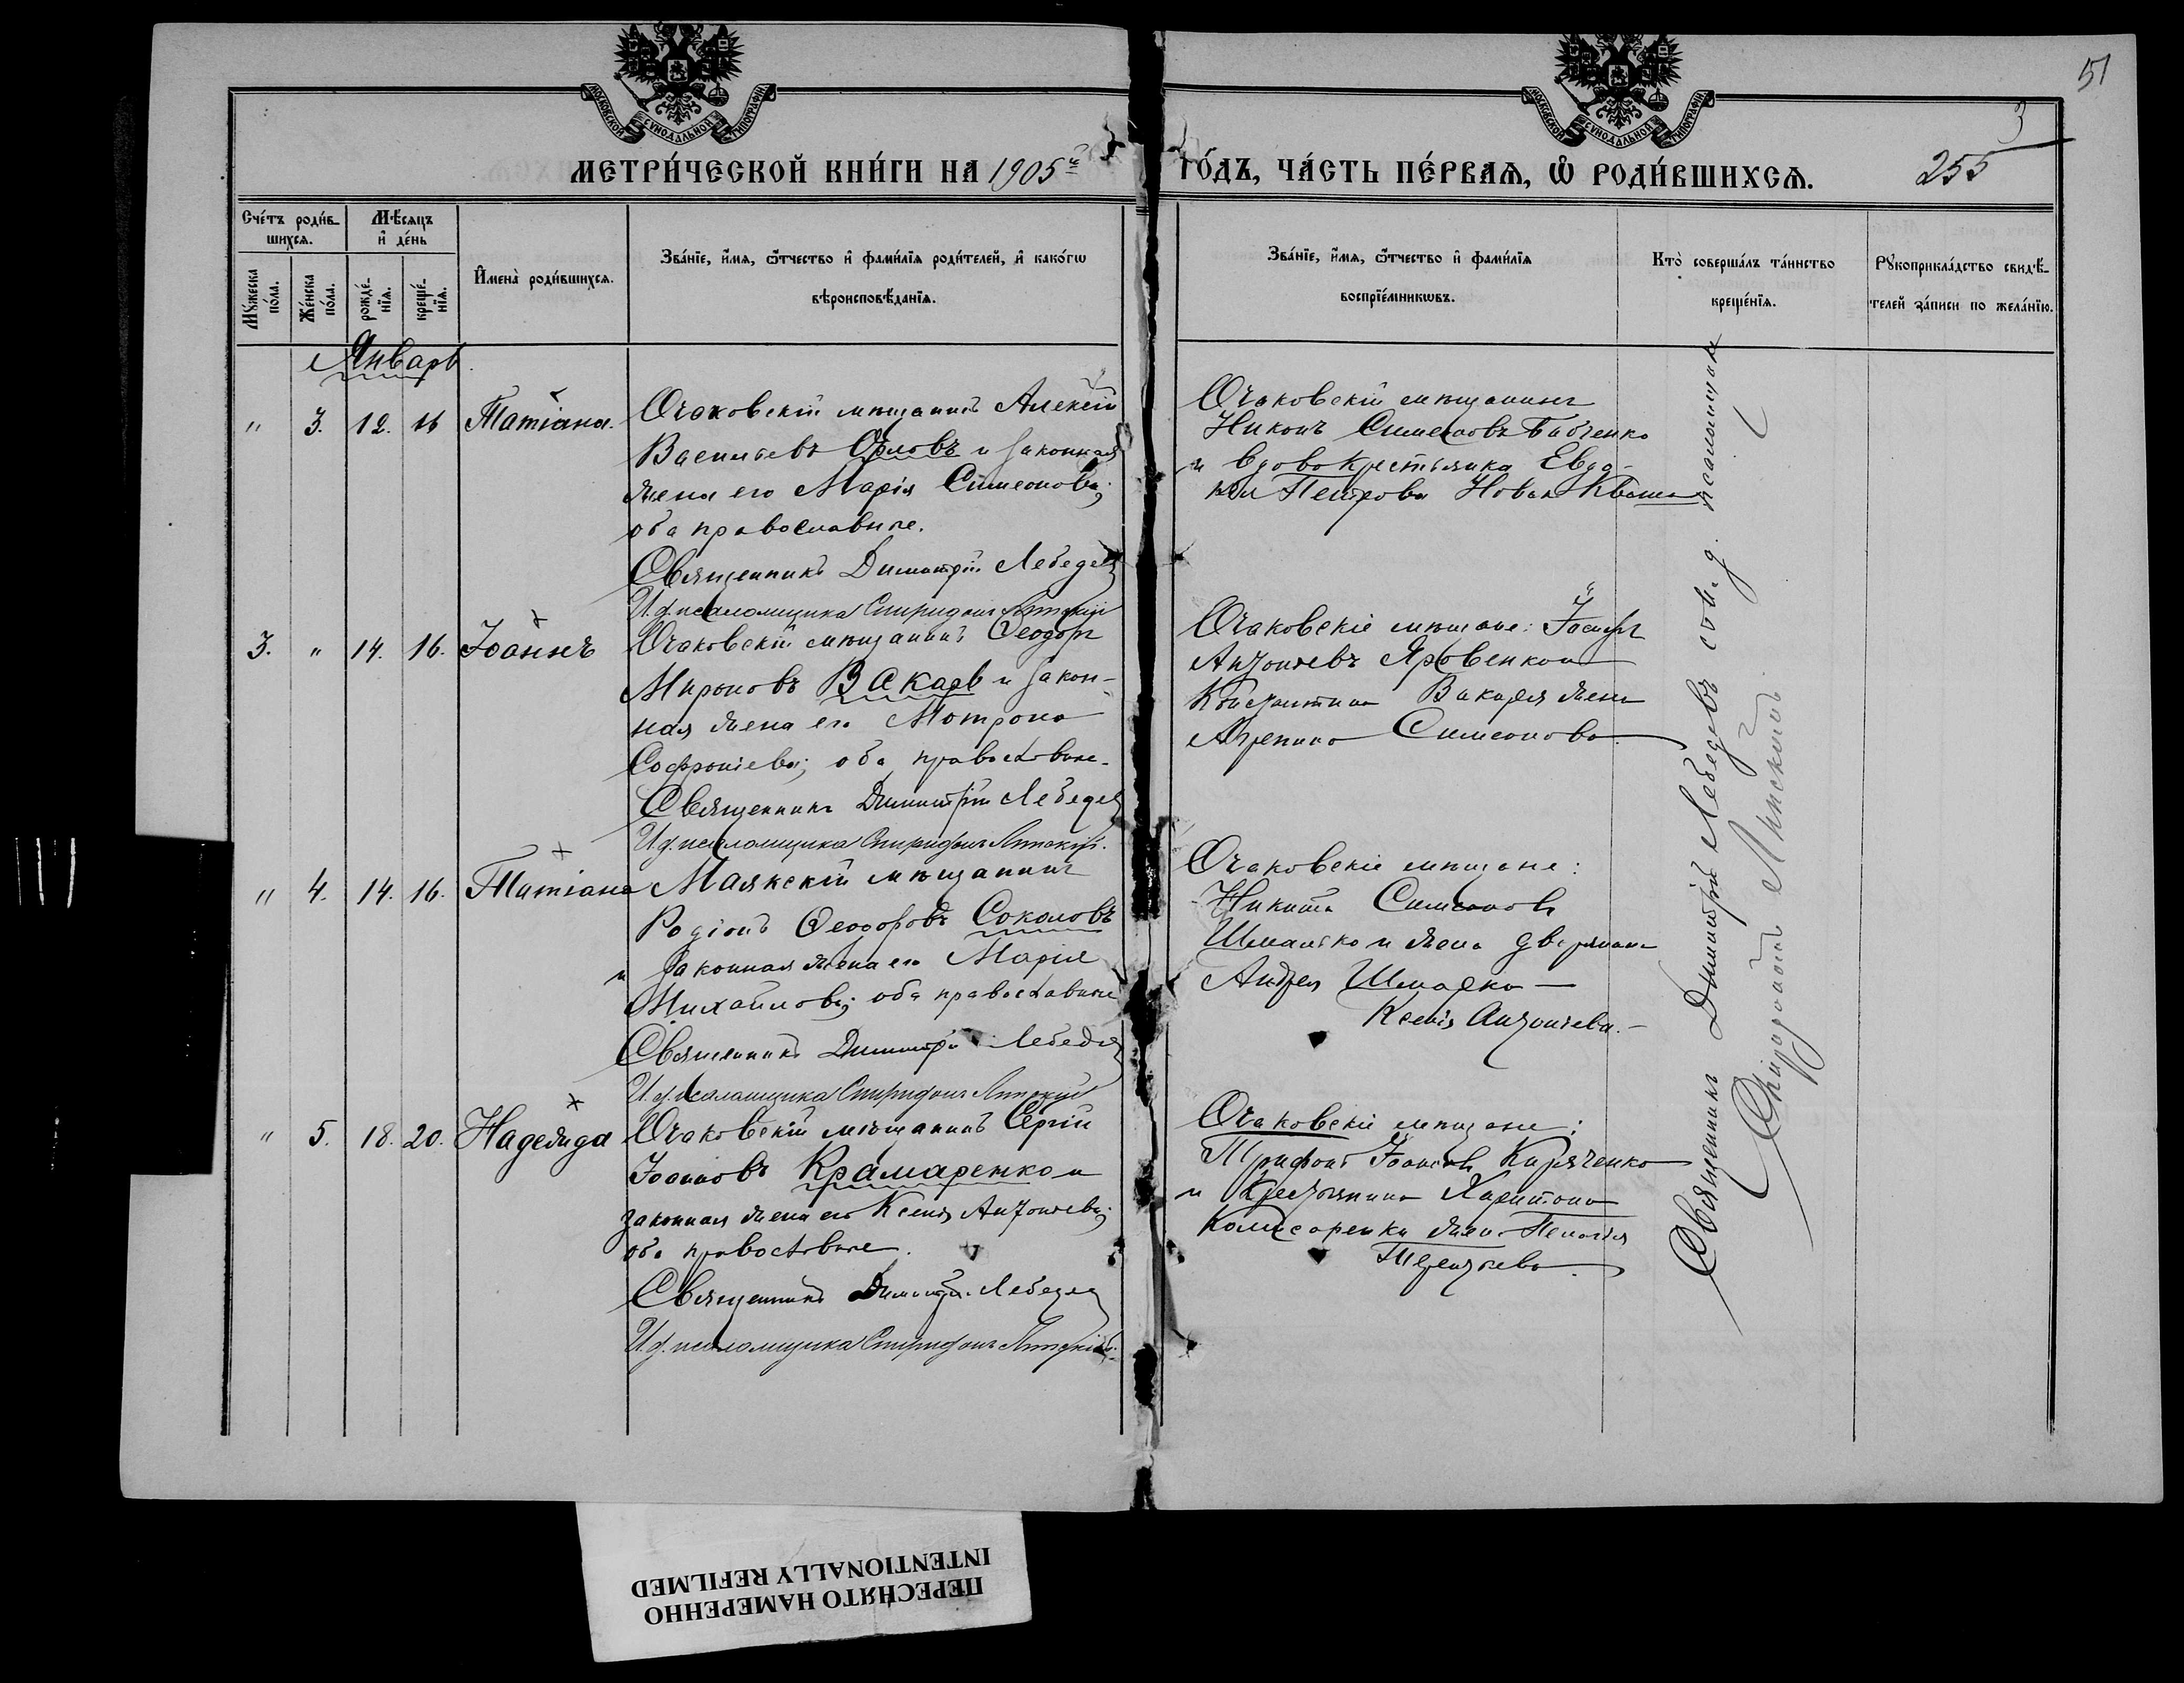 51
3
255
МОСКОВСКОЙ СѴНОДАЛЬНОЙ ТИПОГРАФІИ
МОСКОВСКОЙ СѴНОДАЛЬНОЙ ТИПОГРАФІИ
МЕТРИ́ЧЕСКОЙ КНИ́ГИ НА 1905й ГО́ДЪ, ЧА́СТЬ ПЕ́РВАѦ, Ѡ҆ РОДИ́ВШИХСѦ.
Сче́тъ роди́в-
шихсѧ.
Мꙋ́жеска по́ла.
Же́нска по́ла.
Мѣ́сяцъ
и҆ де́нь
рожде́-нїѧ.
креще́-нїѧ.
И҆мена̀ роди́вшихсѧ.
Зва́нїе, и҆́мѧ, ѻ҆́тчество и҆ фами́лїѧ роди́телей, и҆ како́гѡ
вѣроисповѣ́данїѧ.
Зва́нїе, и҆́мѧ, ѻ҆́тчество и҆ фами́лїѧ
воспрїе́мникѡвъ.
Кто̀ соверша́лъ та́инство
креще́нїѧ.
Рꙋкоприкла́дство свидѣ́-
телей за́писи по жела́нїю.
Январь
" 3. 12. 16 Татіана.
Очаковскій мѣщанинъ Алексій
Васильевъ Орловъ и законная
жена его Марія Симеонова;
оба православные.
Священникъ Димитрій Лебедев
И.д. псаломщика Спиридонъ
Очаковскій мѣщанинъ
Никонъ Симеоновъ Бабченко
и вдова крестьянка Евдо-
кія Петрова
3. " 14. 16. Іоаннъ
Очаковскій мѣщанинъ Ѳеодоръ
Мироновъ Вакарь и закон-
ная жена его Матрона
Софроніева; оба православные.
Священникъ Димитрій Лебедев
И.д. псаломщика Спиридонъ
Очаковскіе мѣщане: Іосифъ
Антоніевъ Яровенко и
Константина Вакаря жена
Агрепина Симеонова.
" 4. 14. 16. Татіана
Маякскій мѣщанинъ
Родіонъ Ѳеодоровъ Соколовъ
и законная жена его Марія
Михайлова; оба православные
Священникъ Димитрій Лебедев
И.д. псаломщика Спиридонъ
Очаковскіе мѣщане:
Никита Симеоновъ
и жена дворянина
Андрея
Ксенія Антоніева.
" 5. 18. 20. Надежда
Очаковскій мѣщанинъ Сергій
Іоанновъ Крамаренко и
законная жена его Ксенія Антоніева;
оба православные.
Священникъ Димитрій Лебедев
И.д. псаломщика Спиридонъ
Очаковскіе мѣщане:
Трифонъ Іоанновъ Кириченко
и крестьянина Харитона
Комисаренка жена Пелагія
Терентіева.
Священникъ Димитрій Лебедевъ с и. д. псаломщика
Спиридономъ
ПЕРЕСНЯТО НАМЕРЕННО
INTENTIONALLY REFILMED